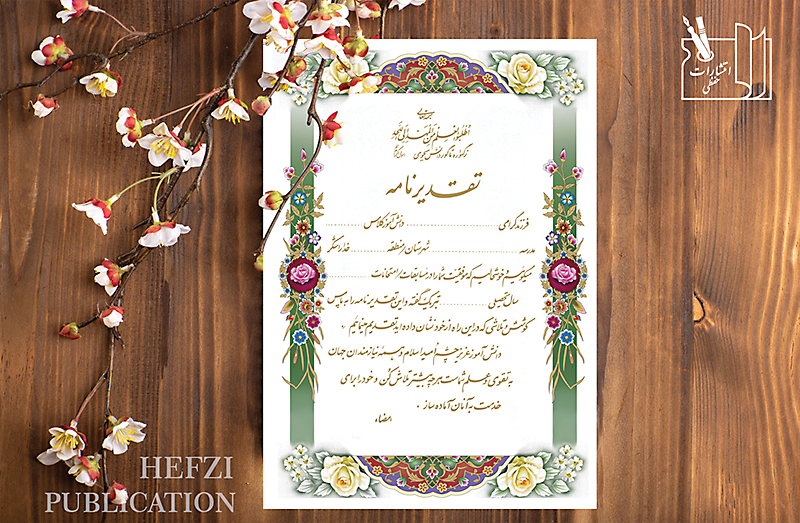 انتشارات
حفظی
اطلبوا العلم من المهد الی اللحد
ز گهواره تا گور دانش بجوی
تقدیرنامه
فرزند گرامی ........ دانش آموز کلاس
مدرسه ........ شهرستان / منطقه ........ خدا را شکر
میکنیم و خوشحالیم که موفقیت شما را در مسابقات / امتحانات
سال تحصیلی ........ تبریک گفته و این تقدیرنامه را به پاس
کوشش و تلاشی که در این راه از خود نشان داده اید تقدیم مینمائیم .
دانش آموز عزیز چشم امید اسلام و همه نیازمندان جهان
به تقوی و علم شماست هر چه بیشتر تلاش کن و خود را برای
خدمت به آنان آماده ساز .
امضاء
HEFZI
PUBLICATION